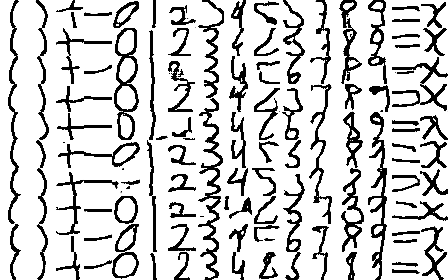 ( ) + - 0 1 2 3 4 5 6 7 8 9 = x
( ) + - 0 1 2 3 4 5 6 7 8 9 = x
( ) + - 0 1 2 3 4 5 6 7 8 9 = x
( ) + - 0 1 2 3 4 5 6 7 8 9 = x
( ) + - 0 1 2 3 4 5 6 7 8 9 = x
( ) + - 0 1 2 3 4 5 6 7 8 9 = x
( ) + - 1 2 3 4 5 7 8 9 = x
( ) + - 0 1 2 3 4 5 6 7 8 9 = x
( ) + - 0 1 2 3 4 5 6 7 8 9 = x
( ) + - 0 1 2 3 4 5 6 7 8 9 = x